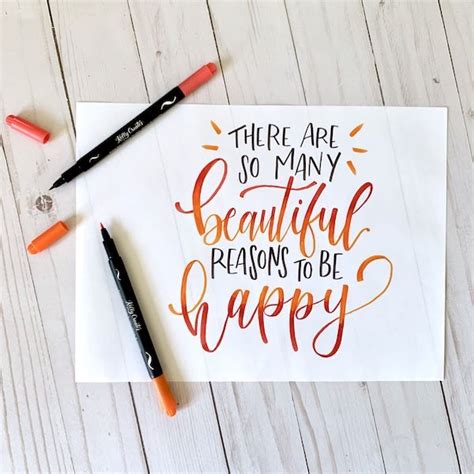 THERE ARE
SO MANY
beautiful
REASONS TO BE
happy
Kelly Creates
Kelly Creates